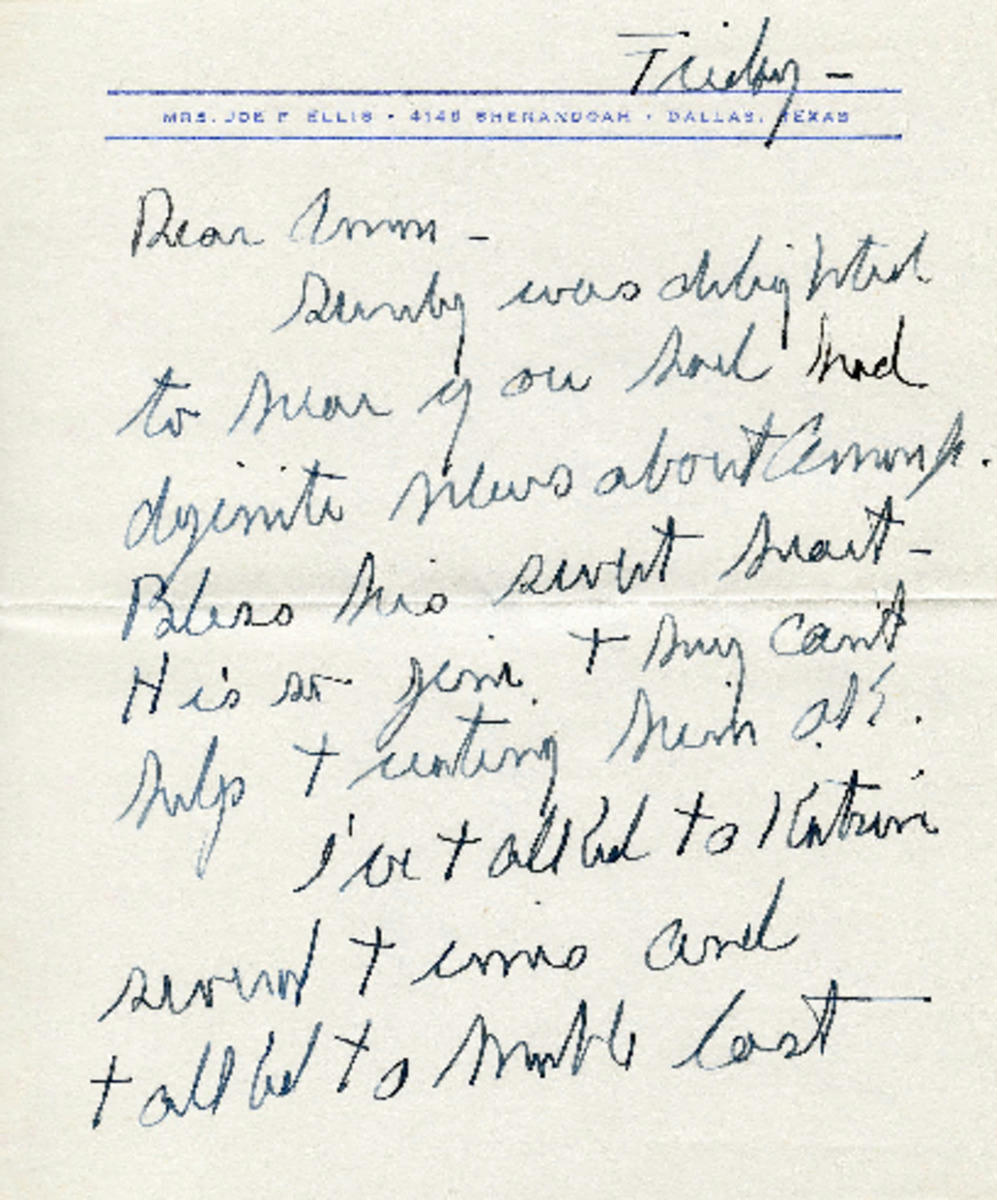 Friday -
MRS. JOE F ELLIS · 4148 SHENANDOAH · DALLAS, TEXAS
Dear Ann -
was delighted
to hear you had had
definite news about
Bless his sweet heart -
He is so fine & they can't
help treating him O.K.
I've talked to Katrine
several times and
talked to last